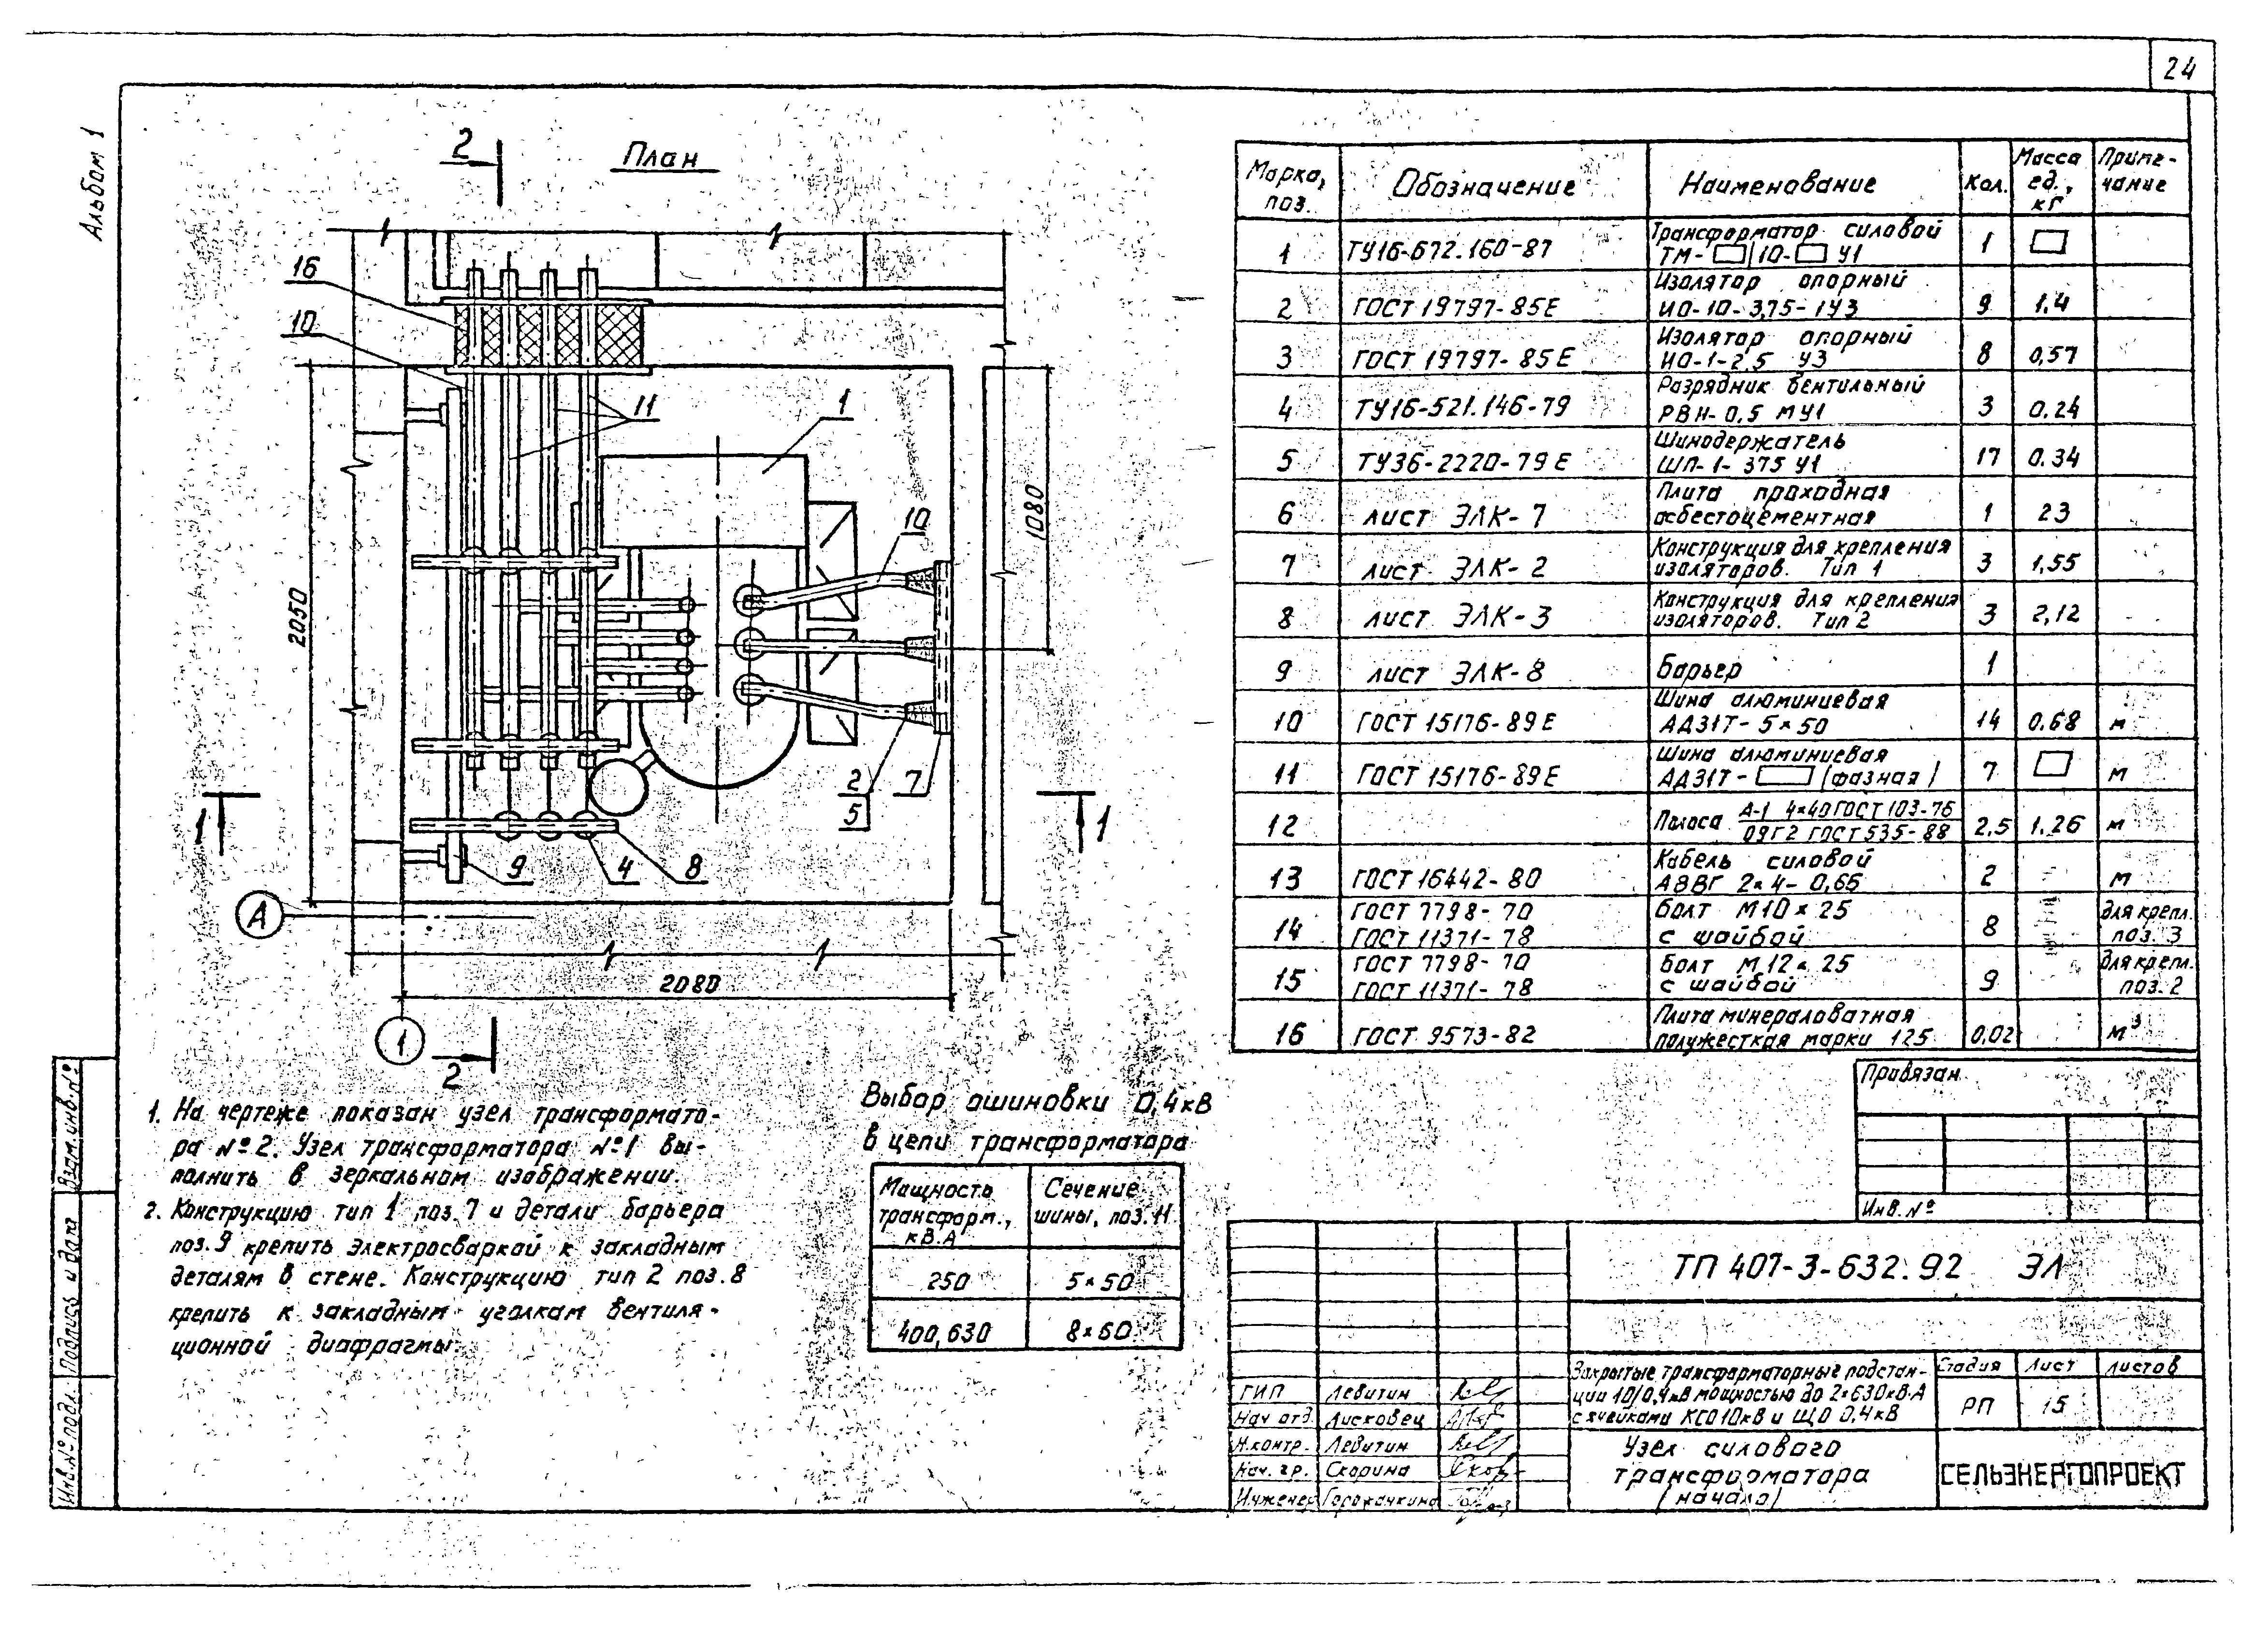 24
Альбом 1
2
План
16
10
11
1
10
1080
2050
2
5
7
1
1
9
4
8
А
2080
1
2
1. На чертеже показан узел трансформато-
ра №2. Узел трансформатора №1 вы-
полнить в зеркальном изображении.
2. Конструкцию тип 1 поз. 7 и детали барьера
поз. 9 крепить электросваркой к закладным
деталям в стене. Конструкцию тип 2 поз. 8
крепить к закладным уголкам вентиля-
ционной диафрагмы.
Выбор ошиновки 0,4 кВ
в цепи трансформатора
Мощность трансформ., кВ.А | Сечение шины, поз. 11
250 | 5×50
400, 630 | 8×60
Марка, поз. | Обозначение | Наименование | Кол. | Масса ед., кг | Приме- чание
1 | ТУ16-672.160-87 | Трансформатор силовой ТМ-□/10-□ У1 | 1 | □
2 | ГОСТ 19797-85Е | Изолятор опорный ИО-10-3,75-1У3 | 9 | 1,4
3 | ГОСТ 19797-85Е | Изолятор опорный ИО-1-2,5 У3 | 8 | 0,57
4 | ТУ16-521.146-79 | Разрядник вентильный РВН-0,5 МУ1 | 3 | 0.24
5 | ТУ36-2220-79Е | Шинодержатель ШП-1-375 У1 | 17 | 0.34
6 | лист ЭЛК-7 | Плита проходная асбестоцементная | 1 | 23
7 | лист ЭЛК-2 | Конструкция для крепления изоляторов. Тип 1 | 3 | 1,55
8 | лист ЭЛК-3 | Конструкция для крепления изоляторов. Тип 2 | 3 | 2,12
9 | лист ЭЛК-8 | Барьер | 1
10 | ГОСТ 15176-89Е | Шина алюминиевая АД31Т-5×50 | 14 | 0.68 | м
11 | ГОСТ 15176-89Е | Шина алюминиевая АД31Т-□ (фазная) | 7 | □ | м
12 | Полоса А-1 4×40 ГОСТ 103-76 / 09Г2 ГОСТ 535-88 | 2,5 | 1.26 | м
13 | ГОСТ 16442-80 | Кабель силовой АВВГ 2×4-0,66 | 2 | м
14 | ГОСТ 7798-70 ГОСТ 11371-78 | Болт М10×25 с шайбой | 8 | для крепл. поз. 3
15 | ГОСТ 7798-70 ГОСТ 11371-78 | Болт М12×25 с шайбой | 9 | для крепл. поз. 2
16 | ГОСТ 9573-82 | Плита минераловатная полужесткая марки 125 | 0,02 | м³
Привязан
Инв. №
ТП 407-3-632.92 ЭЛ
Закрытые трансформаторные подстан-
ции 10/0,4кВ мощностью до 2×630кВ.А
с ячейками КСО 10кВ и ЩО 0,4кВ
Стадия | Лист | Листов
РП | 15
Узел силового
трансформатора
(начало)
СЕЛЬЭНЕРГОПРОЕКТ
ГИП | Левитин
Нач. отд. | Лисковец
Н.контр. | Левитин
Нач. гр. | Скорина
Инженер
Взам. инв. №
Подпись и дата
Инв. № подл.